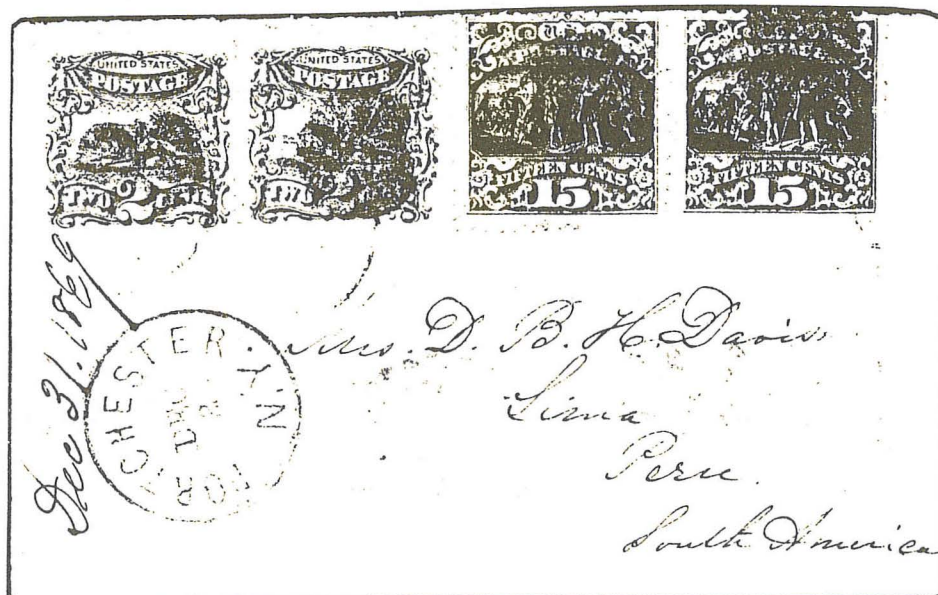 UNITED STATES
POSTAGE
TWO 2 CENTS
UNITED STATES
POSTAGE
TWO 2
U.S.
POSTAGE
FIFTEEN CENTS
15
POSTAGE
FIFTEEN CENTS
15
Dec 31. 1869
ROCHESTER. N.Y.
DEC
Mrs. D. B. H. Davis
Lima
Peru.
South America